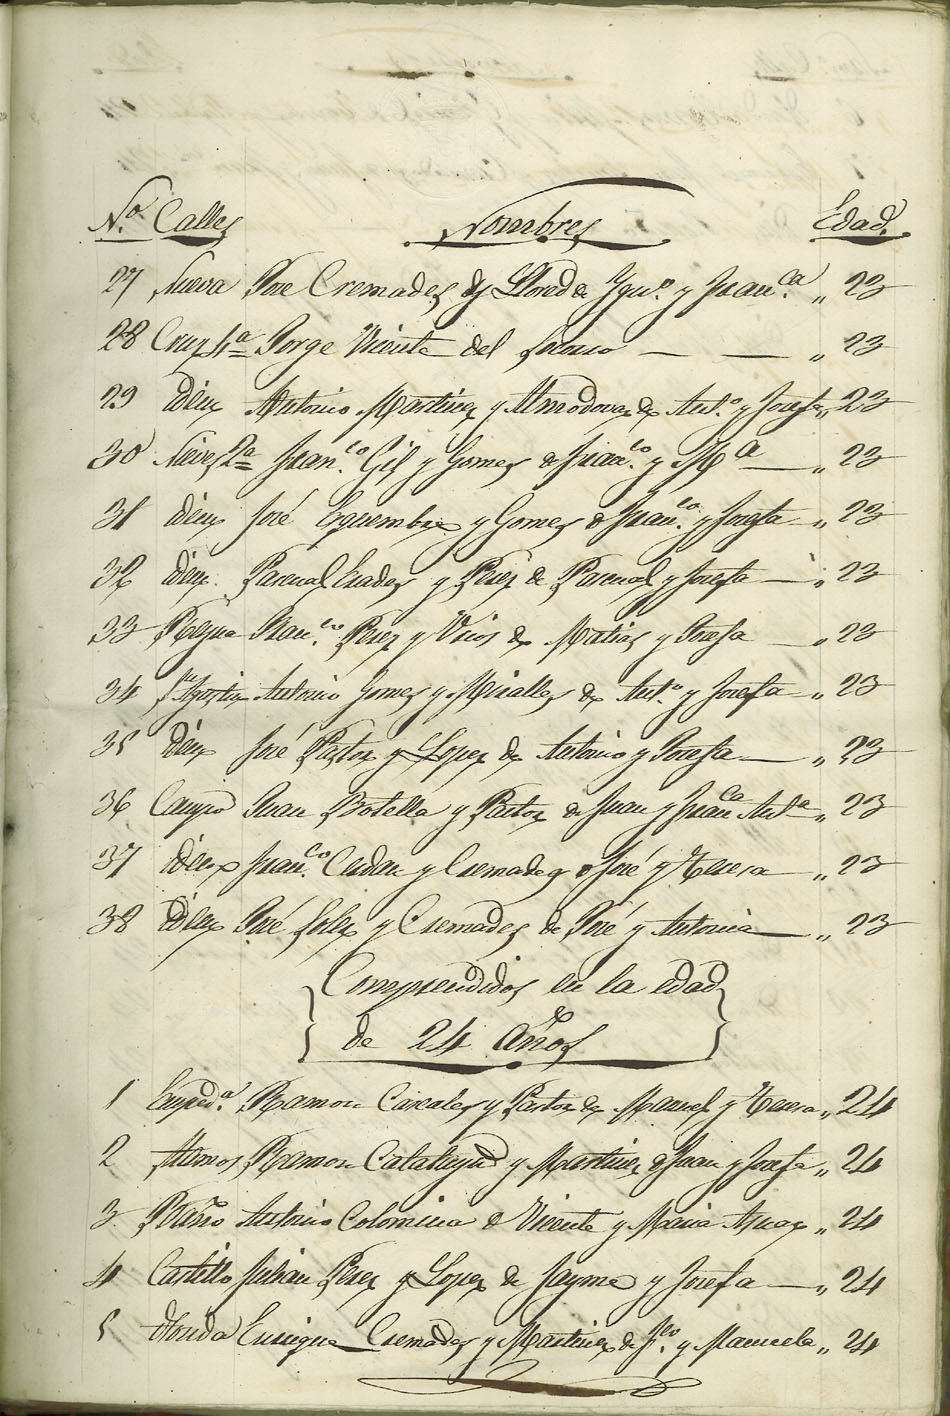 N.º Calles Nombres Edad.
27 Nueva José Cremades y Lloret de Ygn.º y Fran.ca „ 23
28 Cruz 4ª Jorge Vicente del Socorro — — „ 23
29 Idem Antonio Martinez y Almodovar de Ant.º y Josefa „ 23
30 Nieves 2ª Fran.co Gil y Gomes de Fran.co y Mª — „ 23
31 Idem José Esquembre y Gomes de Fran.co y Josefa „ 23
32 Idem Pascual y Perez de Pascual y Josefa — „ 23
33 Fran.co Perez y de Matias y Josefa — „ 23
34 Sn Agustin Antonio Gomes y Miralles de Ant.º y Josefa — „ 23
35 Idem José Pastor y Lopez de Antonio y Josefa — „ 23
36 Campo Juan Botella y Pastor de Juan y Franca Anta „ 23
37 Idem Fran.co Cerdan y Cremades de José y Teresa — „ 23
38 Idem José Soler y Cremades de José y Antonia — „ 23
Comprendidos en la edad
de 24 Años
1 Emped.ª Ramon Carcales y Pastor de Manuel y Teresa „ 24
2 Alamos Ramon Catalayud y Martinez de Juan y Josefa „ 24
3 Antonio Colomina de Vicente y Maria „ 24
4 Castillo Julian Perez y Lopez de Jayme y Josefa — „ 24
5 Honda Enrique Cremades y Martinez de F.co y Manuela „ 24